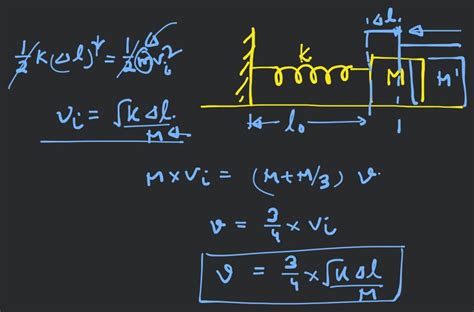 ½ K (Δl)² = ½ M vᵢ²
vᵢ = √K Δl / M
Δl
K
M M'
l₀
M × vᵢ = (M + M/3) v
v = 3/4 × vᵢ
v = 3/4 × √K Δl / M